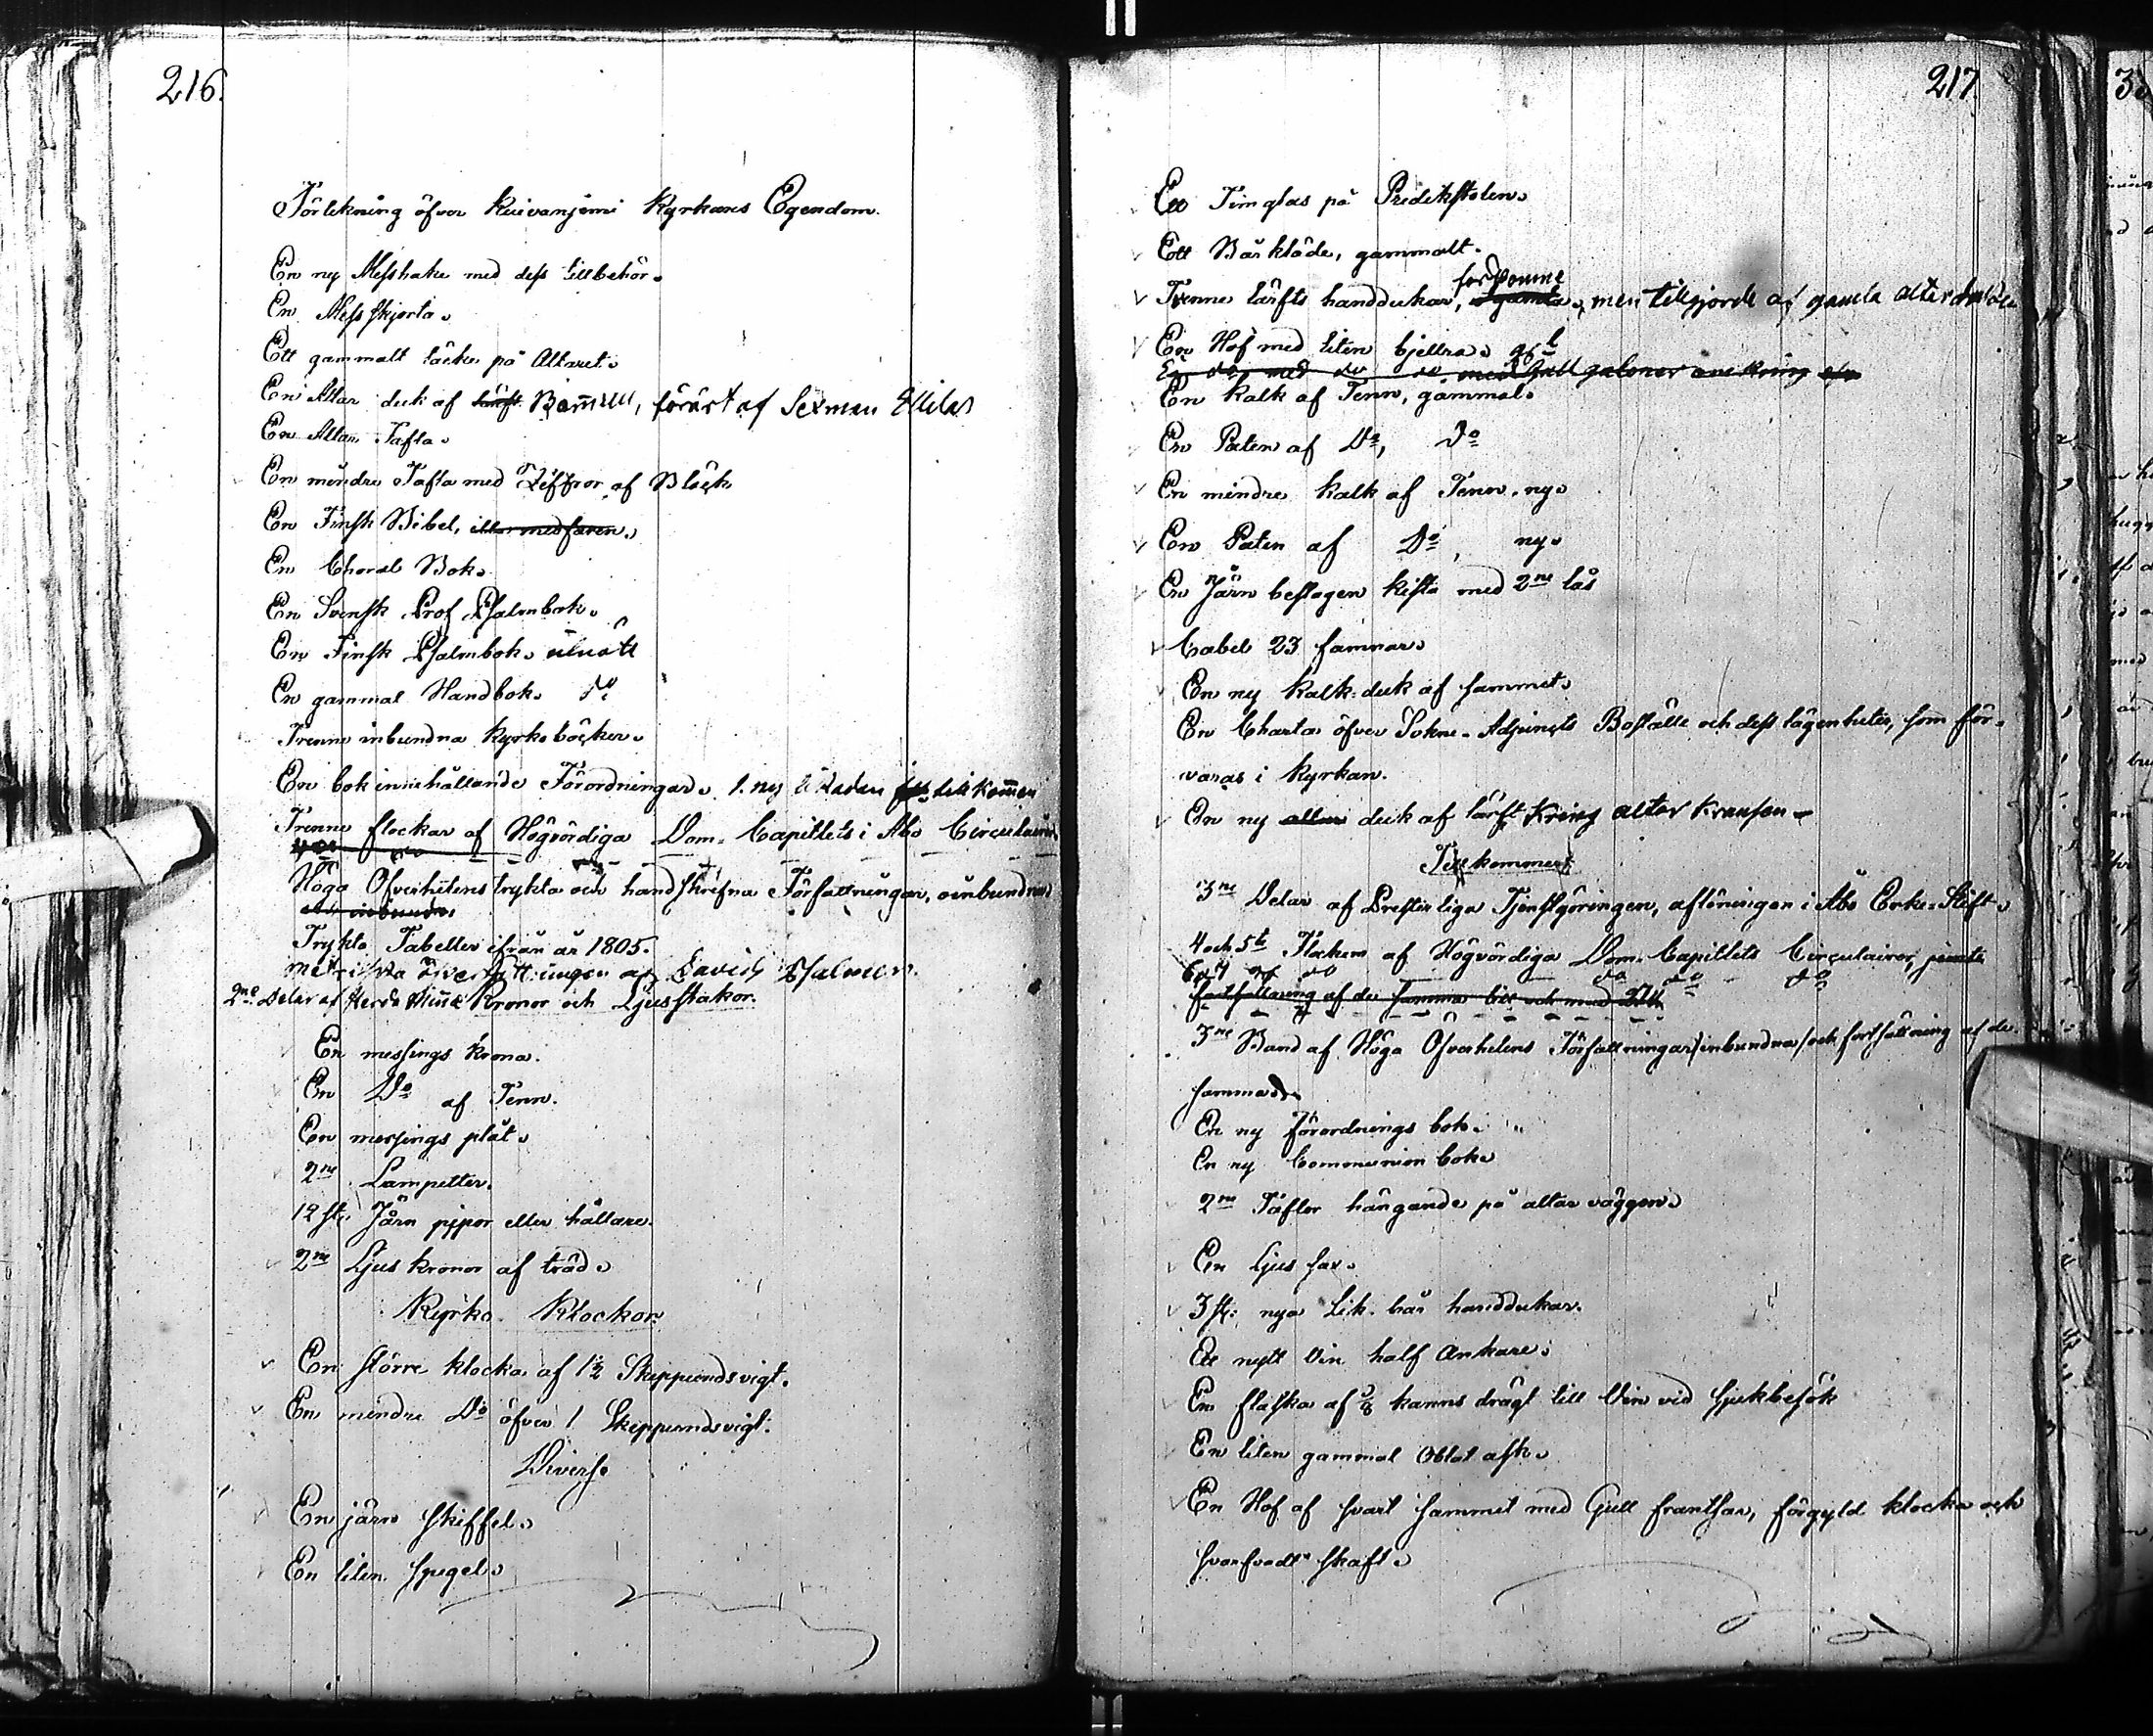 216.
Förtekning öfver Kuivaniemi Kyrkans Egendom.
En ny Messhake med dess tillbehör.
En Messskjorta.
Ett gammalt täcke på Altaret.
En Altar duk af lärft Bomull, förärt af Sexman
En Altar Tafla.
En mindre Tafla med Ziffror af Bläck
En Finsk Bibel, illa medfaren.
En Choral Bok.
En Svensk Prof Psalmbok.
En Finsk Psalmbok. utnött
En gammal Handbok. do
Trenne inbundna Kyrkoböcker.
En bok innehållande Förordningar. 1. ny sedan tillkommen
Trenne flockar af Högvördiga Dom-Capitlets i Åbo Circulairer
Höga Öfverhetens trykta och handskrefna Författningar, oinbundna
Trykta Tabeller ifrån år 1805.
Metriska Öfversättningen af Davids Psalmer.
2ne Delar af
Kronor och Ljusstakar.
En messings krona.
En Do af Tenn.
En messings plåt.
2ne Lampetter.
12 st. Järn pipor eller hållare.
2ne Ljus kronor af träd.
Kyrko Klockor
En större klocka af 1½ Skeppundsvigt.
En mindre Do öfver 1 Skeppundsvigt.
Diverse
En järn skiffel.
En liten spegel.
217.
Ett Timglas på Predikstolen.
Ett Bårkläde, gammalt.
fordomme
Trenne lärfts handdukar, gamla, men tillgjorde af gamla altar
En Hof med liten bjellra.
En do med do do med gull galoner omkring
En Kalk af Tenn, gammal.
En Paten af Do, Do
En mindre Kalk af Tenn, ny.
En Paten af Do, ny.
En Järn beslagen kista med 2ne lås
Cabel 23 famnar.
En ny Kalk-duk af sammet.
En Charta öfver Sokne-Adjuncts Boställe och dess lägenheter, som för-
varas i Kyrkan.
En ny altar duk af lärft kring altar kransen
Tillkommer
3ne Delar af Presterliga Tjenstgöringen, aflöningen i Åbo Erke-Stift.
4 och 5te Flocken af Högvördiga Dom-Capitlets Circulairer, jemte
fortsättning af de samma till och med
3ne Band af Höga Öfverhetens Författningar /inbundna/ och fortsättning af de
samma.
En ny Förordnings bok.
En ny Communion bok
2ne Taflor hängande på altar väggen.
En Ljus sax.
3 st. nya Lik-bår handdukar.
Ett nytt Vin half Ankare.
En flaska af kanns drägt till Vin vid Sjukbesök
En liten gammal Oblat ask.
En Hof af svart sammet med Gull frantsar, förgyld klocka och
svarfvadt skaft.